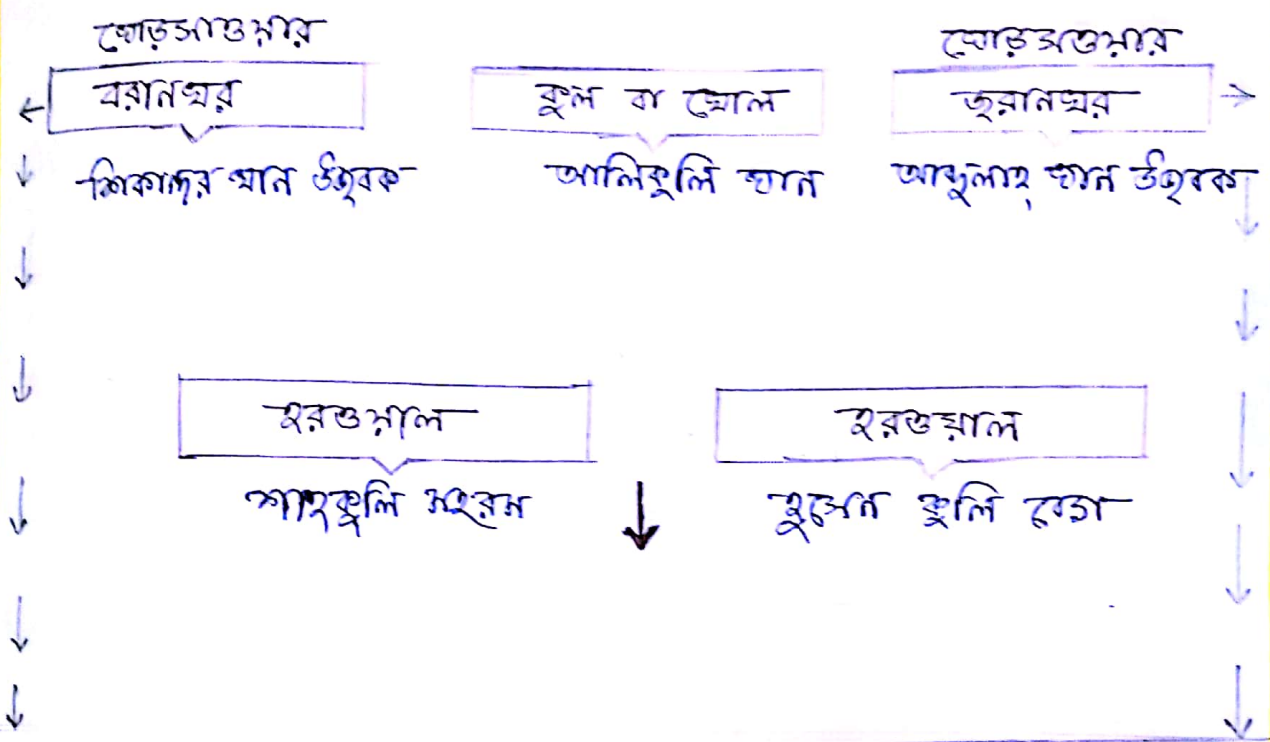 ঘোড়সাওয়ার
বরানঘর
শিকান্দর খান উজবক
কুল বা ঘোল
আলিকুলি খান
ঘোড়সওয়ার
জুরানঘর
আব্দুলাহ্ খান উজবক
হরওয়াল
শাহকুলি মহরম
হরওয়াল
হুসেন কুলি বেগ